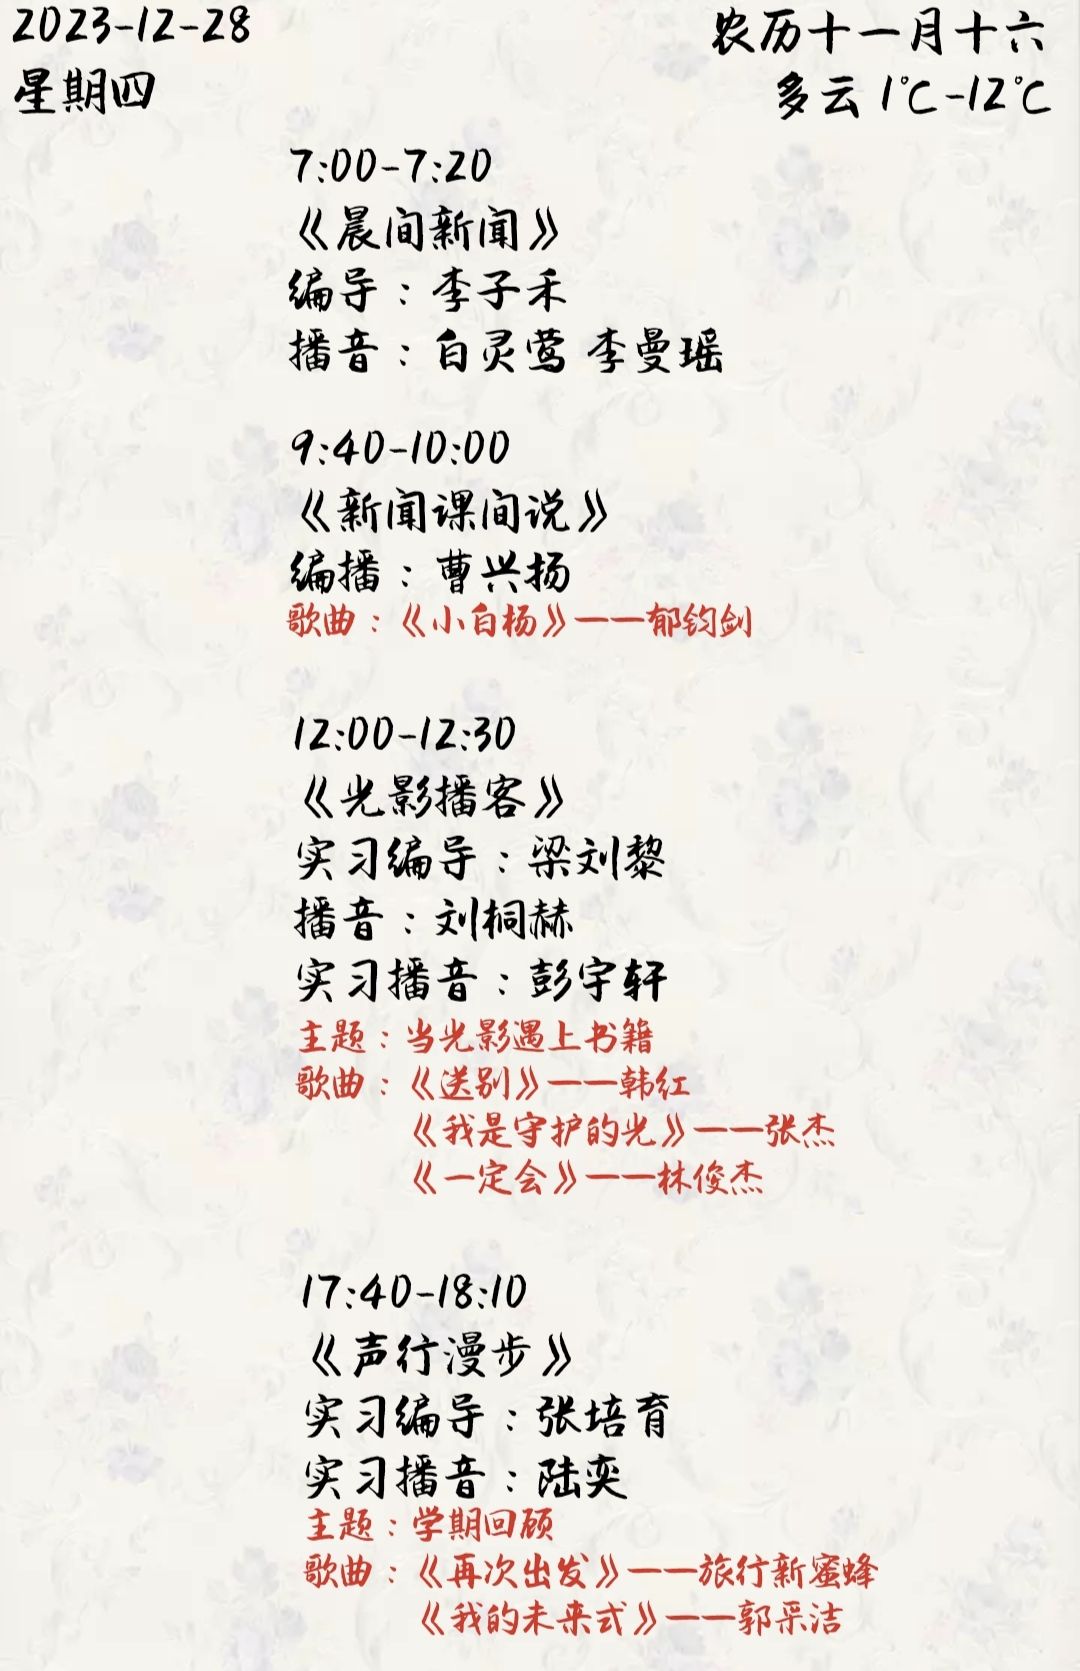 2023-12-28
星期四
农历十一月十六
多云 1℃-12℃
7:00-7:20
《晨间新闻》
编导：李子禾
播音：白灵莺 李曼瑶
9:40-10:00
《新闻课间说》
编播：曹兴扬
歌曲：《小白杨》——郁钧剑
12:00-12:30
《光影播客》
实习编导：梁刘黎
播音：刘桐赫
实习播音：彭宇轩
主题：当光影遇上书籍
歌曲：《送别》——韩红
《我是守护的光》——张杰
《一定会》——林俊杰
17:40-18:10
《声行漫步》
实习编导：张培育
实习播音：陆奕
主题：学期回顾
歌曲：《再次出发》——旅行新蜜蜂
《我的未来式》——郭采洁